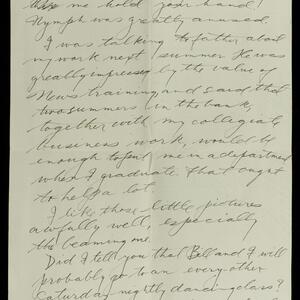 me hold your hand!
Nymph was greatly amused.
I was talking to father about
my work next summer. He was
greatly impressed by the value of
News training and said that
two summers in the bank,
together with my collegiate
business work, would be
enough to put me in a department
when I graduate. That ought
to help a lot.
I like those little pictures
awfully well, especially
the beaming one.
Did I tell you that Bell and I will
probably go to an every other
Saturday nightly dancing class?